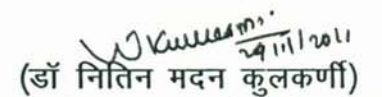 29/11/2011
(डॉ नितिन मदन कुलकर्णी)